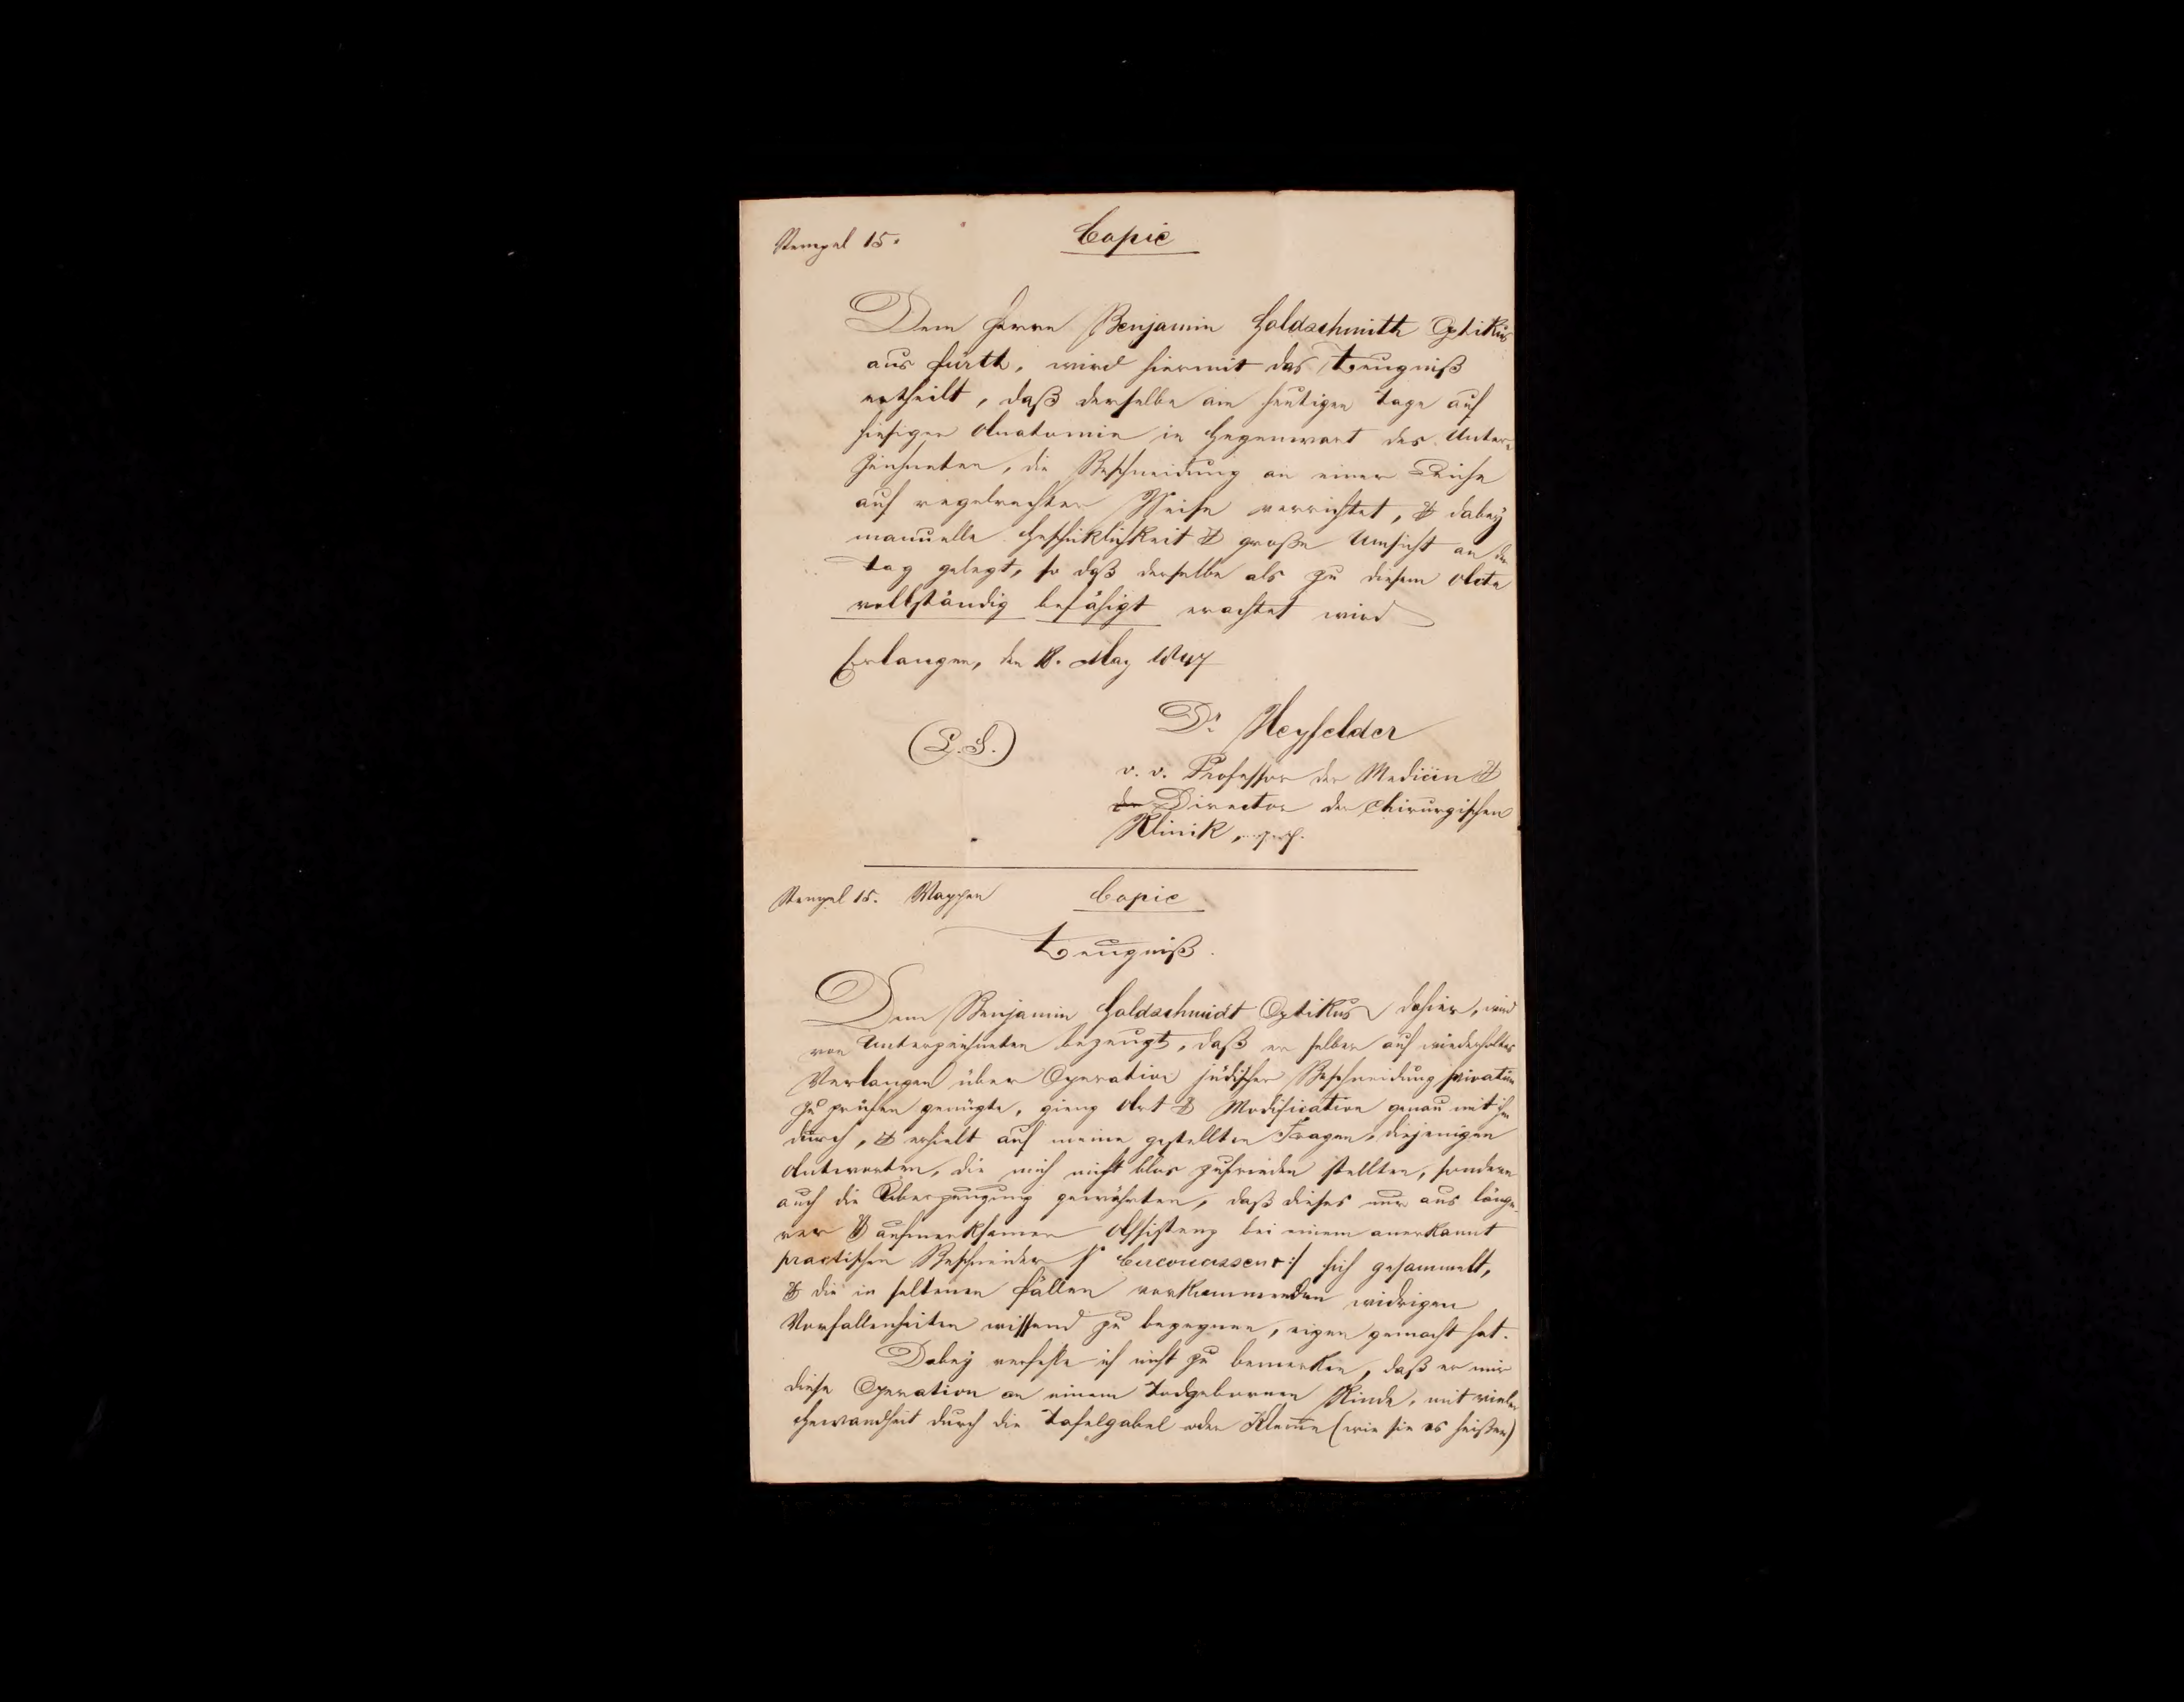 Stempel 15.
Copie
Dem Herrn Benjamin Goldschmith Optikus
aus Fürth, wird hiermit das Zeugniß
ertheilt, daß derselbe am heutigen Tage auf
hiesiger Anatomie in Gegenwart des Unter-
zeichneten, die Beschneidung an einer Leiche
auf regelrechter Weise verrichtet, & dabey
manuelle Geschiklichkeit & große Umsicht an den
Tag gelegt, so daß derselbe als zu diesem Acte
vollständig befähigt erachtet wird
Erlangen, den 18. May 1847
Dr. Heyfelder
(L. S.)
o. o. Professor der Medicin &
der Director der chirurgischen
Klinik,
Stempel 15. Wappen
Copie
Zeugniß.
Dem Benjamin Goldschmidt Optikus dahier, wird
von Unterzeichneten bezeugt, daß er selben auf wiederholtes
Verlangen über Operation jüdischer Beschneidung privatim
zu prüfen genügte, gieng Art & Modification genau mit ihm
durch, & erhielt auf meine gestellten Fragen, diejenigen
Antworten, die mich nicht blos zufrieden stellten, sondern
auch die Überzeugung gewährten, daß dieses nur aus länge-
rer & aufmerksamer Assistenz bei einem anerkannt
practischen Beschneider sich gesammelt,
& die in seltenen Fällen vorkommenden widrigen
Vorfallenheiten wissend zu begegnen, eigen gemacht hat.
Dabey verfehle ich nicht zu bemerken, daß er mir
diese Operation an einem Todgebornen Kinde, mit vieler
Gewandheit durch die Tafelgabel oder Klem̅e (wie sie es heißen)